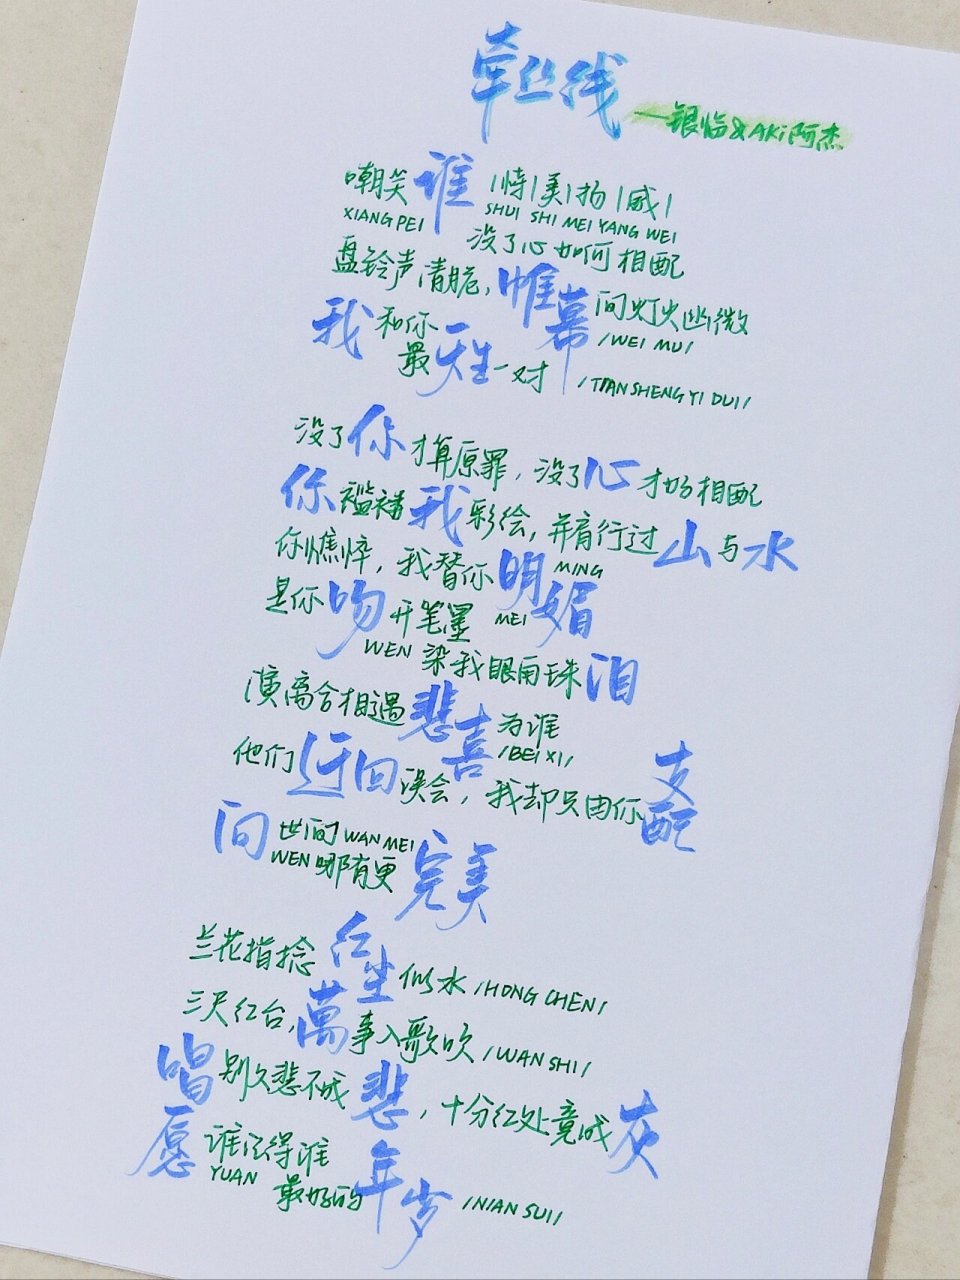 牵丝线
——银临&AKi阿杰
嘲笑谁|恃|美|扬|威|
XIANG PEI SHUI SHI MEI YANG WEI
没了心如何相配
盘铃声清脆，帷幕间灯火幽微
/WEI MU/
我和你
最天生一对 /TIAN SHENG YI DUI/
没了你才算原罪，没了心才好相配
你褴褛我彩绘，并肩行过山与水
你憔悴，我替你明媚
MING
MEI
是你吻开笔墨
WEN 染我眼角珠泪
演离合相遇悲喜为谁
/BEI XI/
他们迂回误会，我却只由你支配
问世间 WAN MEI
WEN 哪有更完美
兰花指捻红尘似水 /HONG CHEN/
三尺红台，萬事入歌吹 /WAN SHI/
唱别久悲不成悲，十分红处竟成灰
愿谁记得谁
YUAN 最好的年岁 /NIAN SUI/